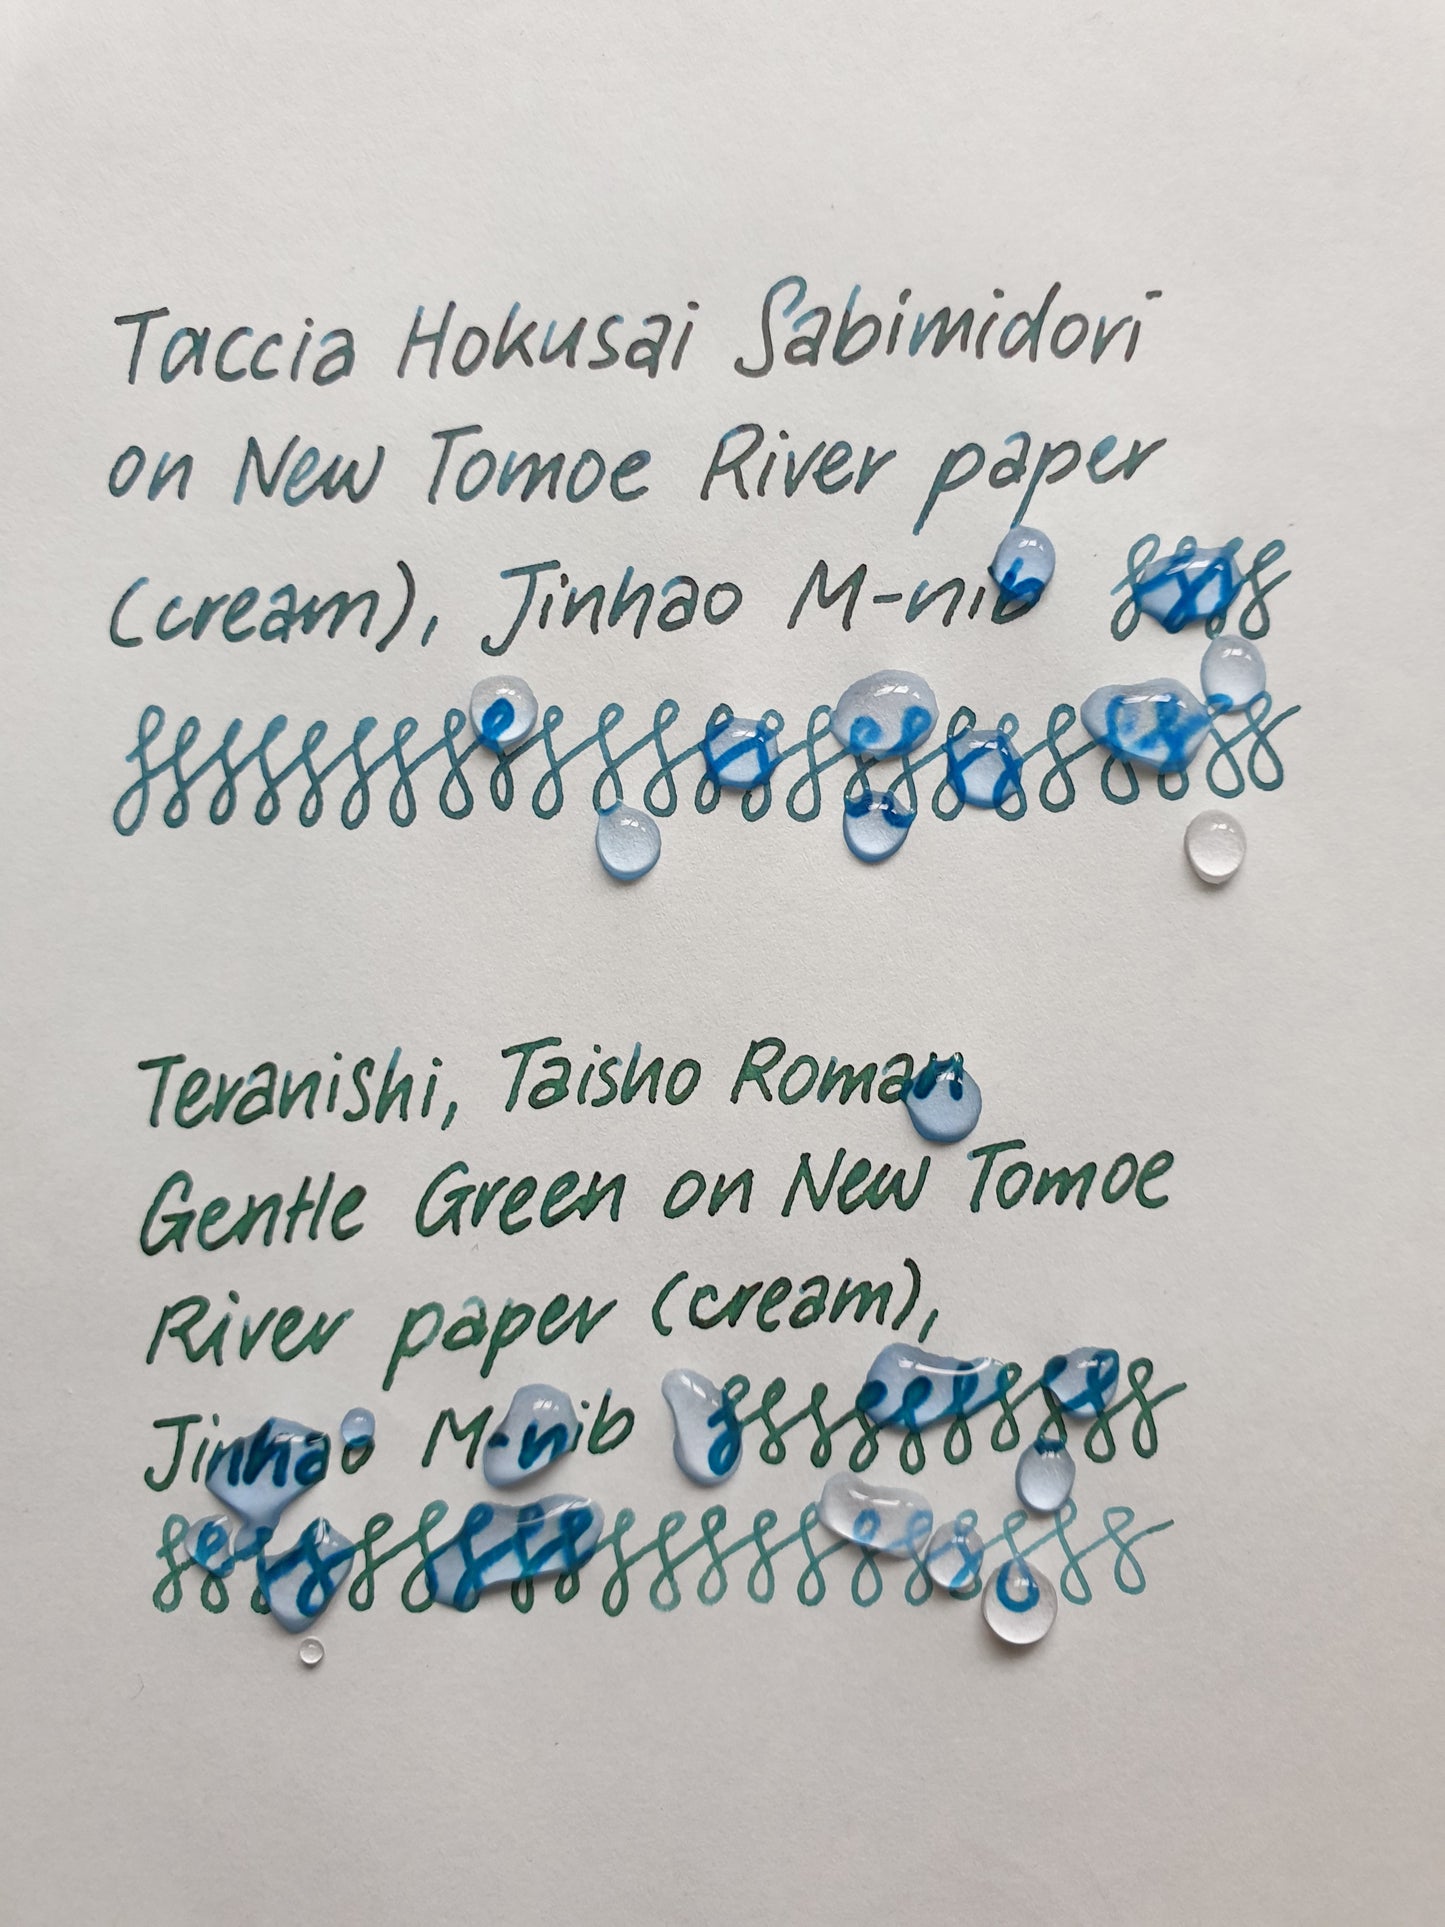 Taccia Hokusai Sabimidori
on New Tomoe River paper
(cream), Jinhao M-nib
Teranishi, Taisho Roman
Gentle Green on New Tomoe
River paper (cream),
Jinhao M-nib